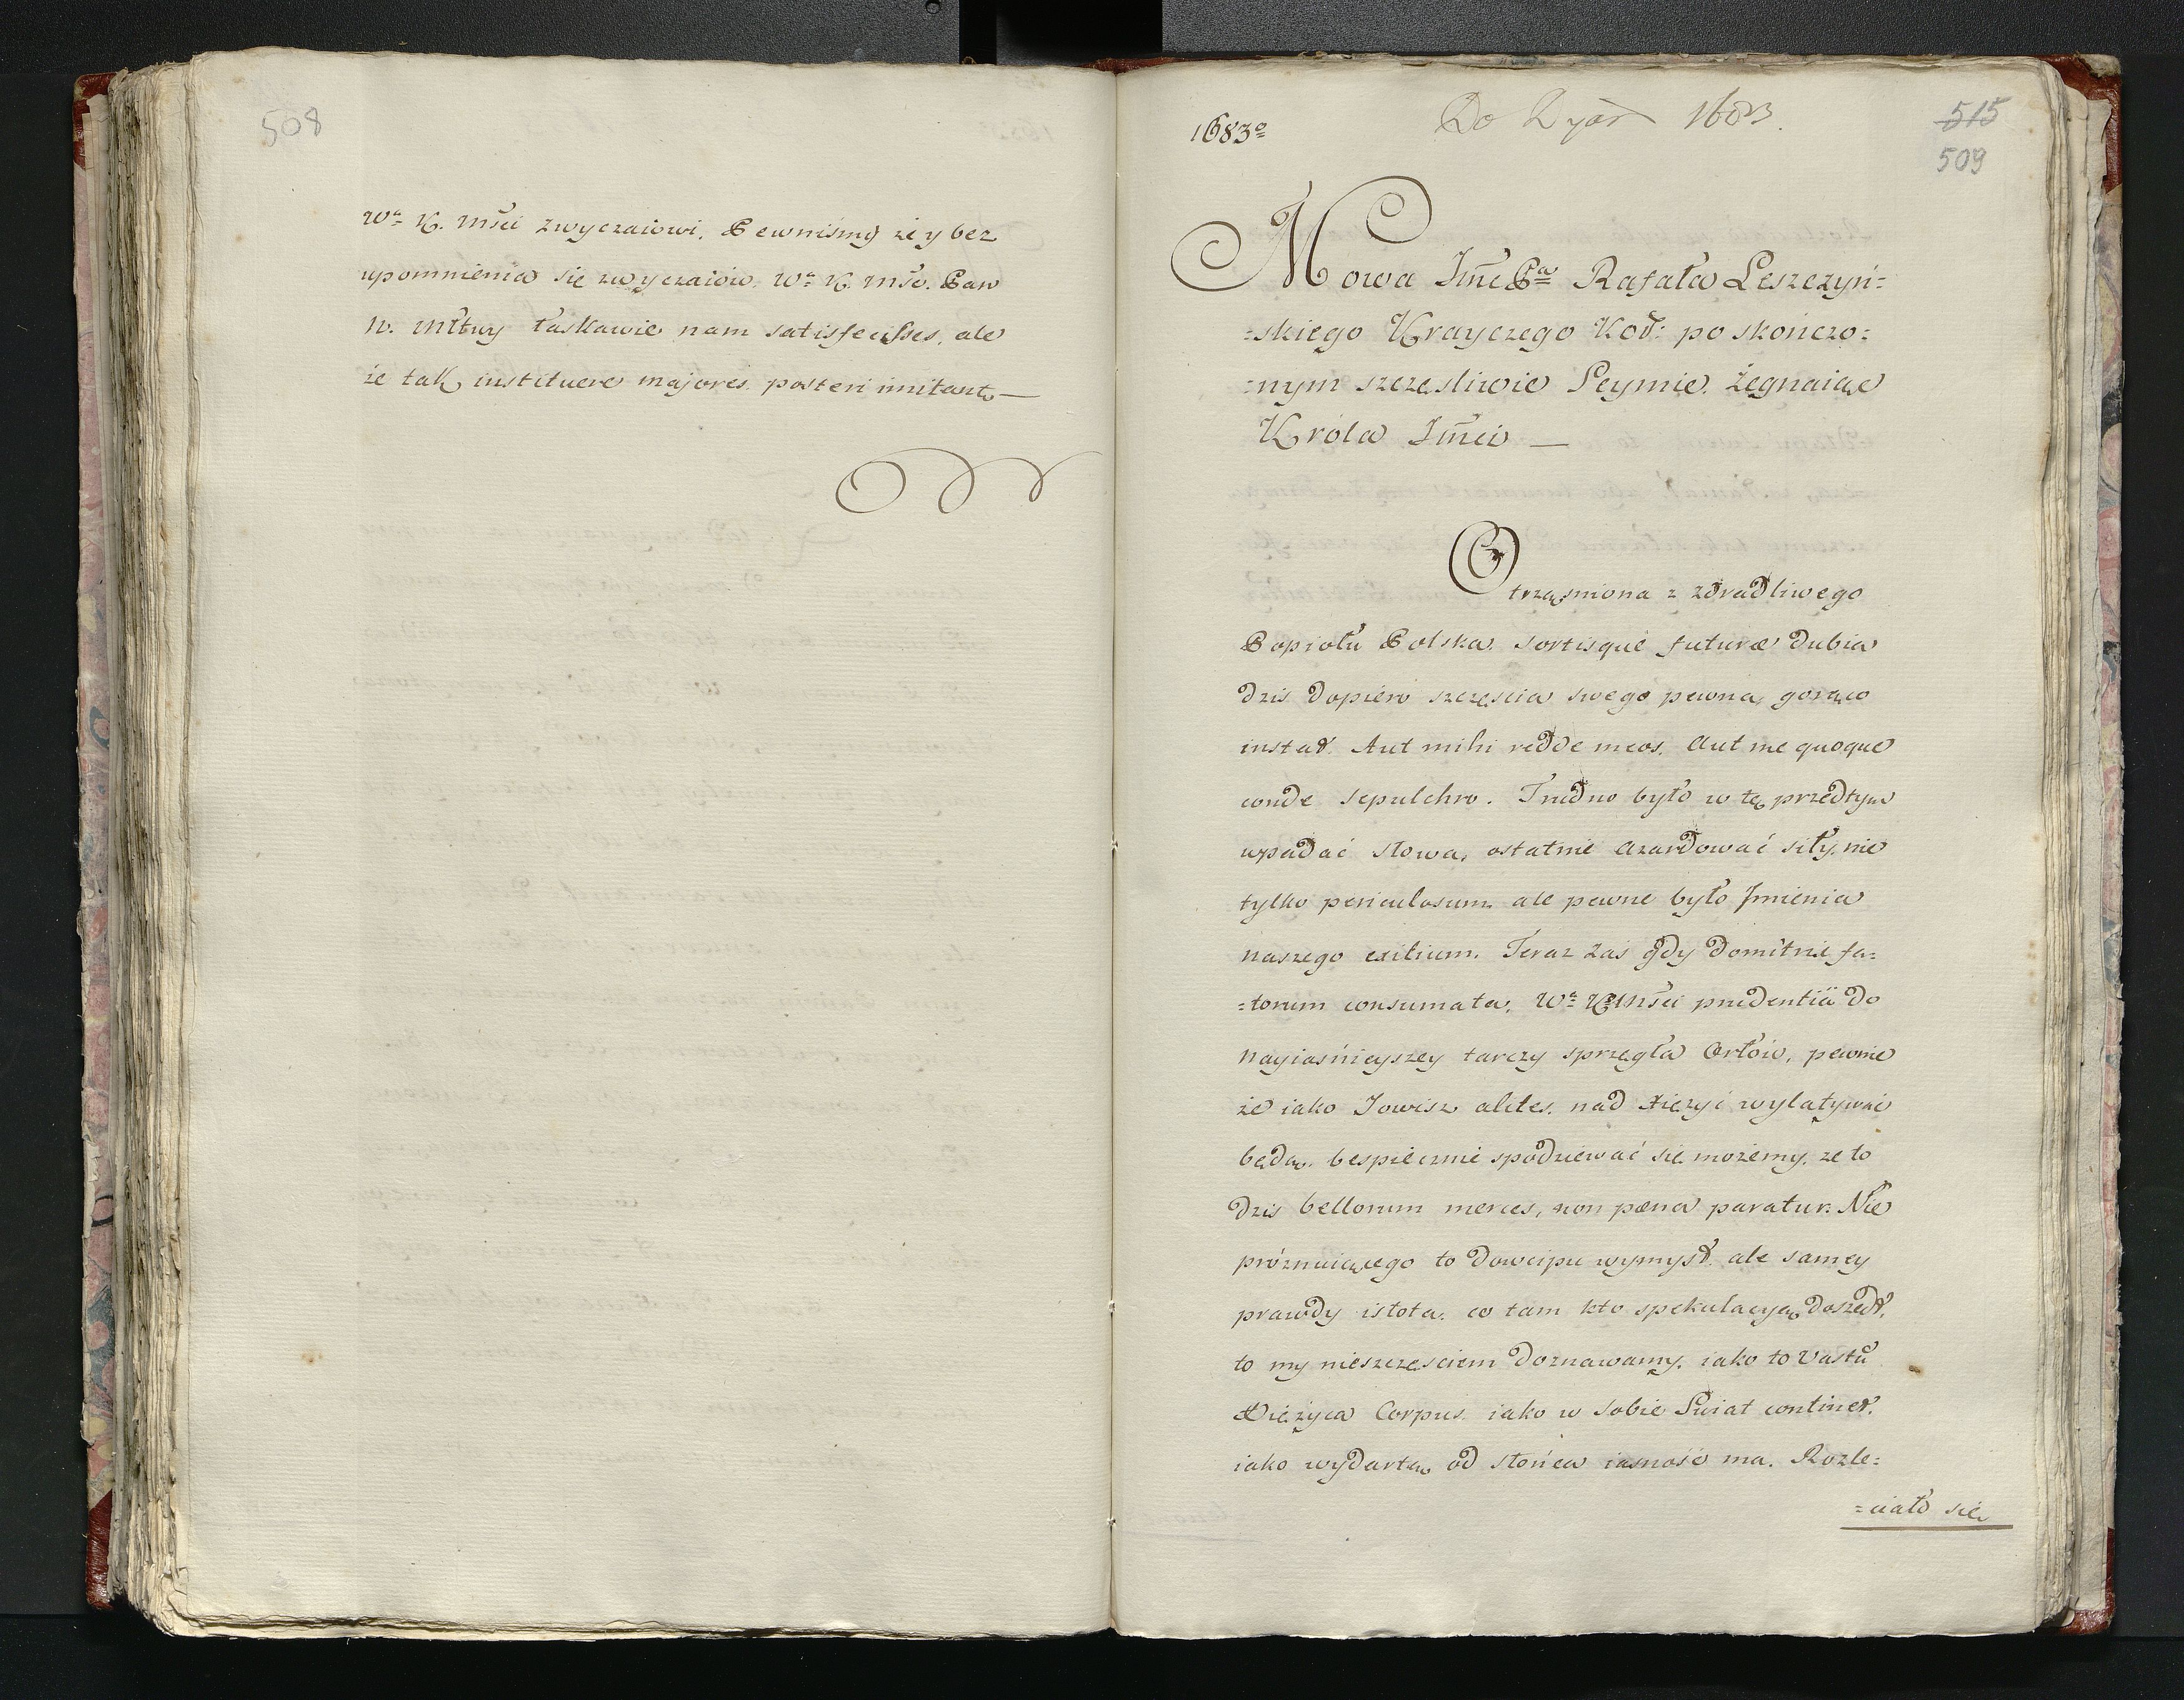 508
Wª K. Mści zwyczaiowi. Pewniśmy że y bez
upomnienia się zwyczaiów. Wª K. Mść. Pan
N. Młtwy łaskawie nam satisfecisses, ale
że tak instituere majores. posteri imitant —
1683º
1683.
515
509
Mowa Jmc Pª Rafała Leszczyń=
=skiego Krayczego Kor: po skończo=
=nym szczęśliwie Seymie. Żegnaiąc
Króla Jmci —
Otrząśniona z zdradliwego
Popiołu Polska. sortisque futuræ dubia
dzis dopiero szczęścia swego pewna, gorąco
instat. Aut mihi redde meos. Aut me quoque
conde sepulchro. Trudno było w te przedtym
wpadać słowa, ostatnie azardować siły. nie
tylko periculosum ale pewne było Jmienia
naszego exitium. Teraz zaś gdy domitrix fa=
=torum consumata. Wª K Mści prudentia do
nayiaśnieyszey tarczy sprzęgła Orłów, pewnie
że iako Jowisz alites. nad Xiężyc wylatywać
będą. bespiecznie spodziewać się możemy. ze to
dzis bellorum merces, non pœna paratur. Nie
próżnuiącego to dowcipu wymysł. ale samey
prawdy istota. co tam kto spekulacyą doszedł.
to my nieszczęściem doznawamy. iako to Vastū
Xiężyca Corpus. iako w sobie Swiat continet.
iako wydartą od słońca iasność ma. Rozle=
=ciało się